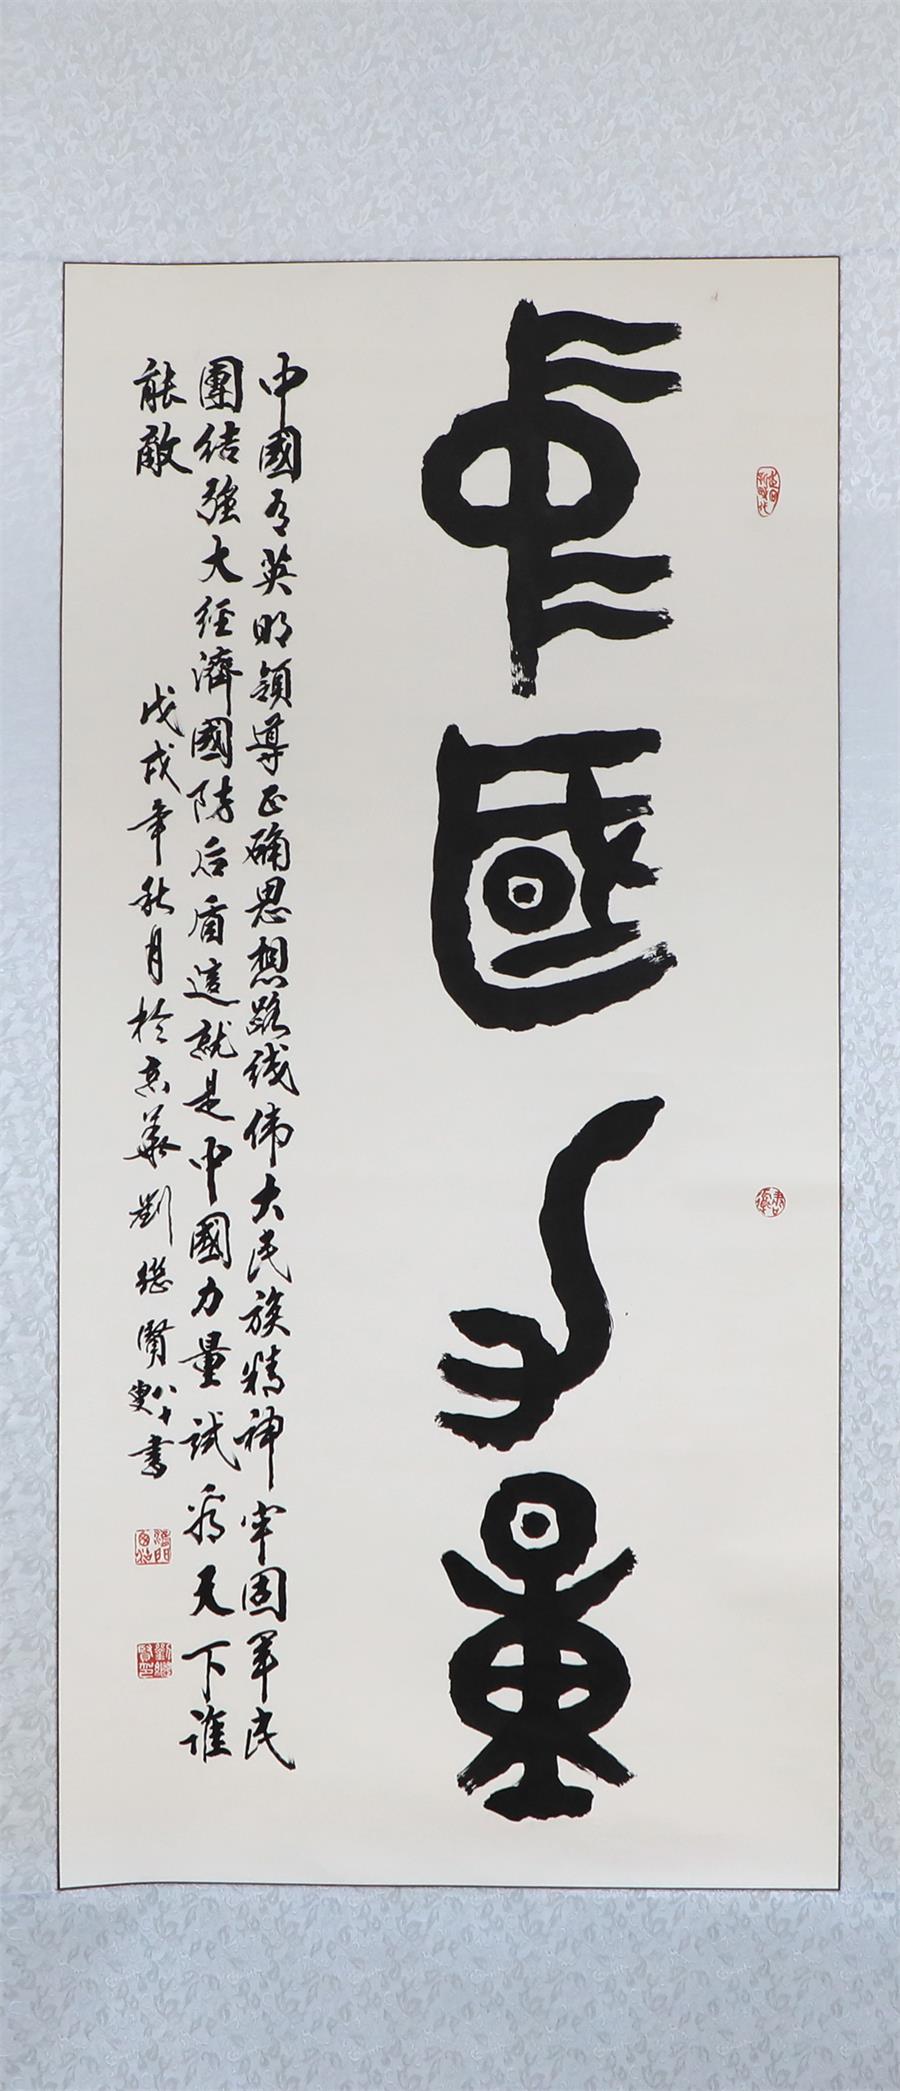 中國力量
中國有英明領導正确思想路线伟大民族精神牢固軍民
團結強大經濟國防后盾這就是中國力量試看天下誰
能敵
戊戌年秋月於京華劉继賢八十叟書